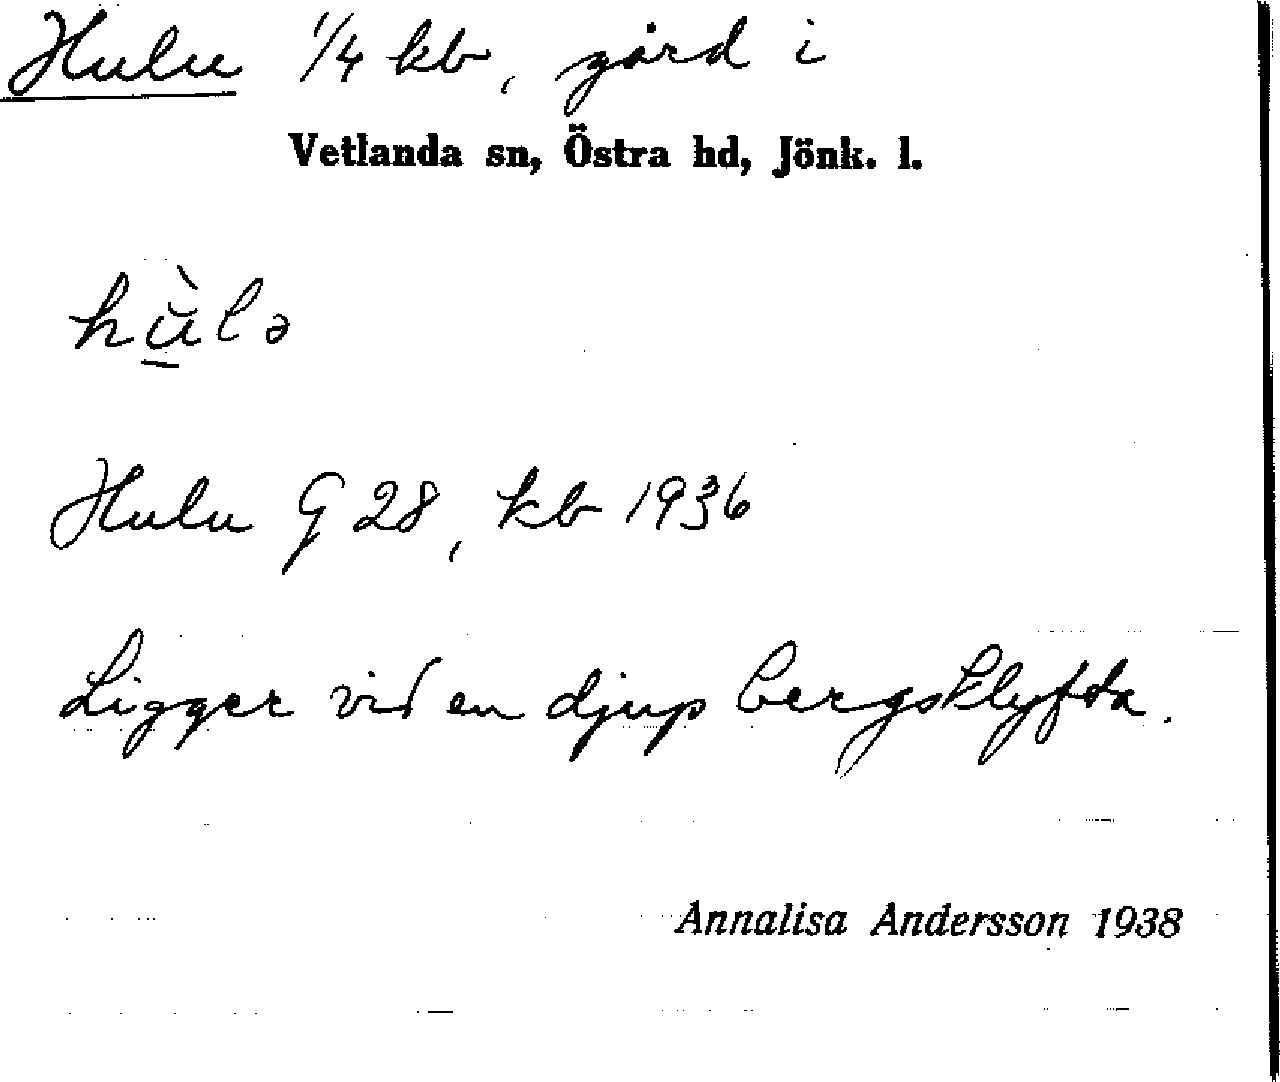 Hulu 1/4 kb, gård i
Vetlanda sn, Östra hd, Jönk. l.
hùlə
Hulu G 28, kb 1936
Ligger vid en djup bergsklyfta.
Annalisa Andersson 1938